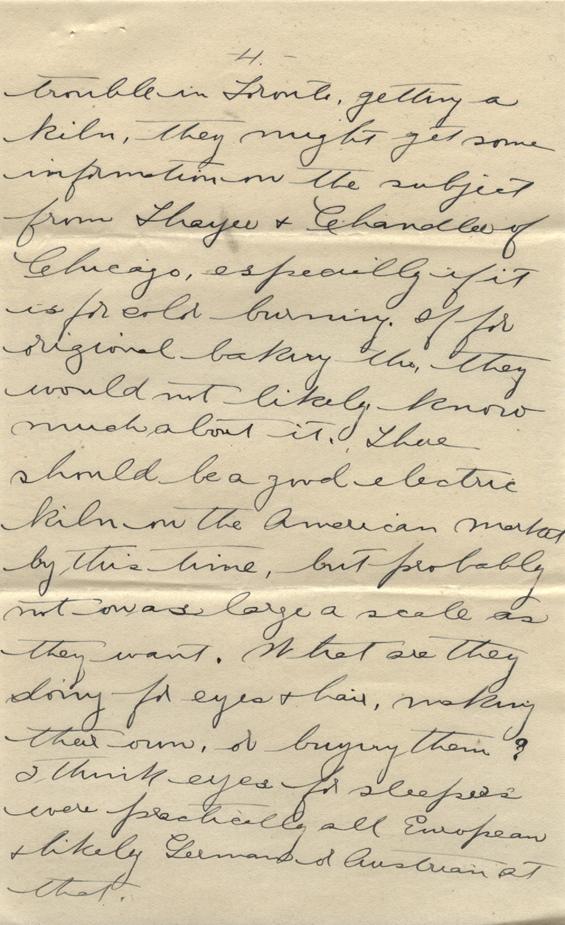 -4.-
trouble in Toronto, getting a
kiln, they might get some
information on the subject
from Thayer & Chandler of
Chicago, especially if it
is for cold burning. If for
original baking tho, they
would not likely know
much about it. There
should be a good electric
kiln on the American market
by this time, but probably
not on as large a scale as
they want. What are they
doing for eyes & hair, making
their own, or buying them?
I think eyes for sleepers
were practically all European
& likely German or Austrian at
that.